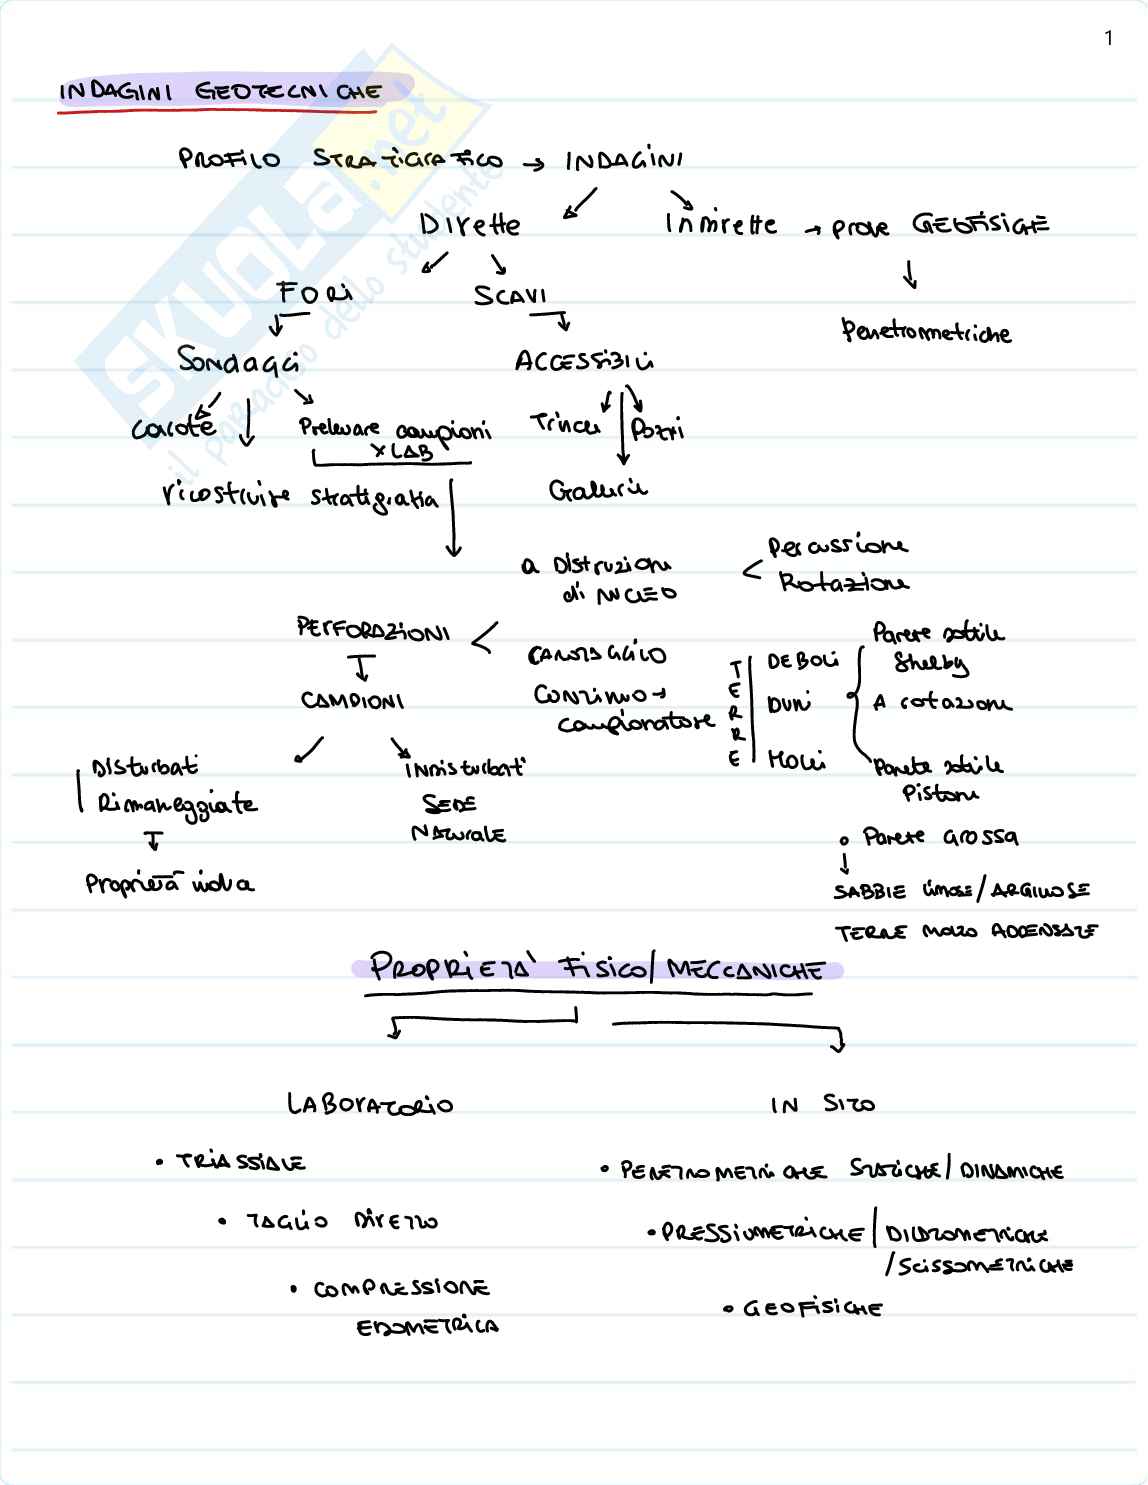 1
INDAGINI GEOTECNICHE
PROFILO STRATIGRAFICO → INDAGINI
Dirette
Indirette → prove GEOFISICHE
FORI
SCAVI
Penetrometriche
Sondaggi
ACCESSIBILI
carote
Prelevare campioni
x LAB
Trincee
Pozzi
ricostruire stratigrafia
Gallerie
a Distruzione
di NUCLEO
Percussione
Rotazione
PERFORAZIONI
CAROTAGGIO
CONTINUO →
campionatore
TERRE
DEBOLI
DURI
MOLLI
Parete sottile
Shelby
A rotazione
Parete sottile
Pistone
CAMPIONI
Disturbati
Rimaneggiate
INDisturbati
SEDE
NATURALE
Proprietà indice
• Parete Grossa
SABBIE limose/ARGILLOSE
TERRE MOLTO ADDENSATE
PROPRIETA' FISICO/MECCANICHE
LABORATORIO
IN SITO
• TRIASSIALE
• TAGLIO DIRETTO
• COMPRESSIONE
EDOMETRICA
• PENETROMETRICHE STATICHE/DINAMICHE
• PRESSIOMETRICHE/DILATOMETRICHE
/SCISSOMETRICHE
• GEOFISICHE
SKUOLA.net
il paradiso dello studente